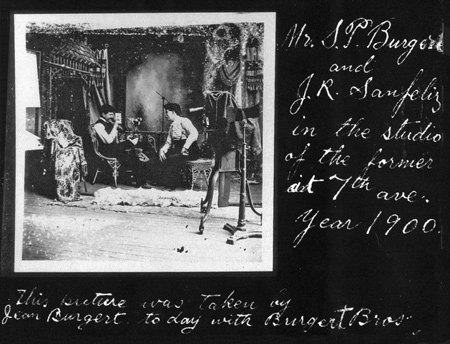 Mr. S.P. Burgert
and
J.R. Sanfeliz
in the studio
of the former
at 7th ave.
Year 1900.
This picture was taken by
Jean Burgert to day with Burgert Bros